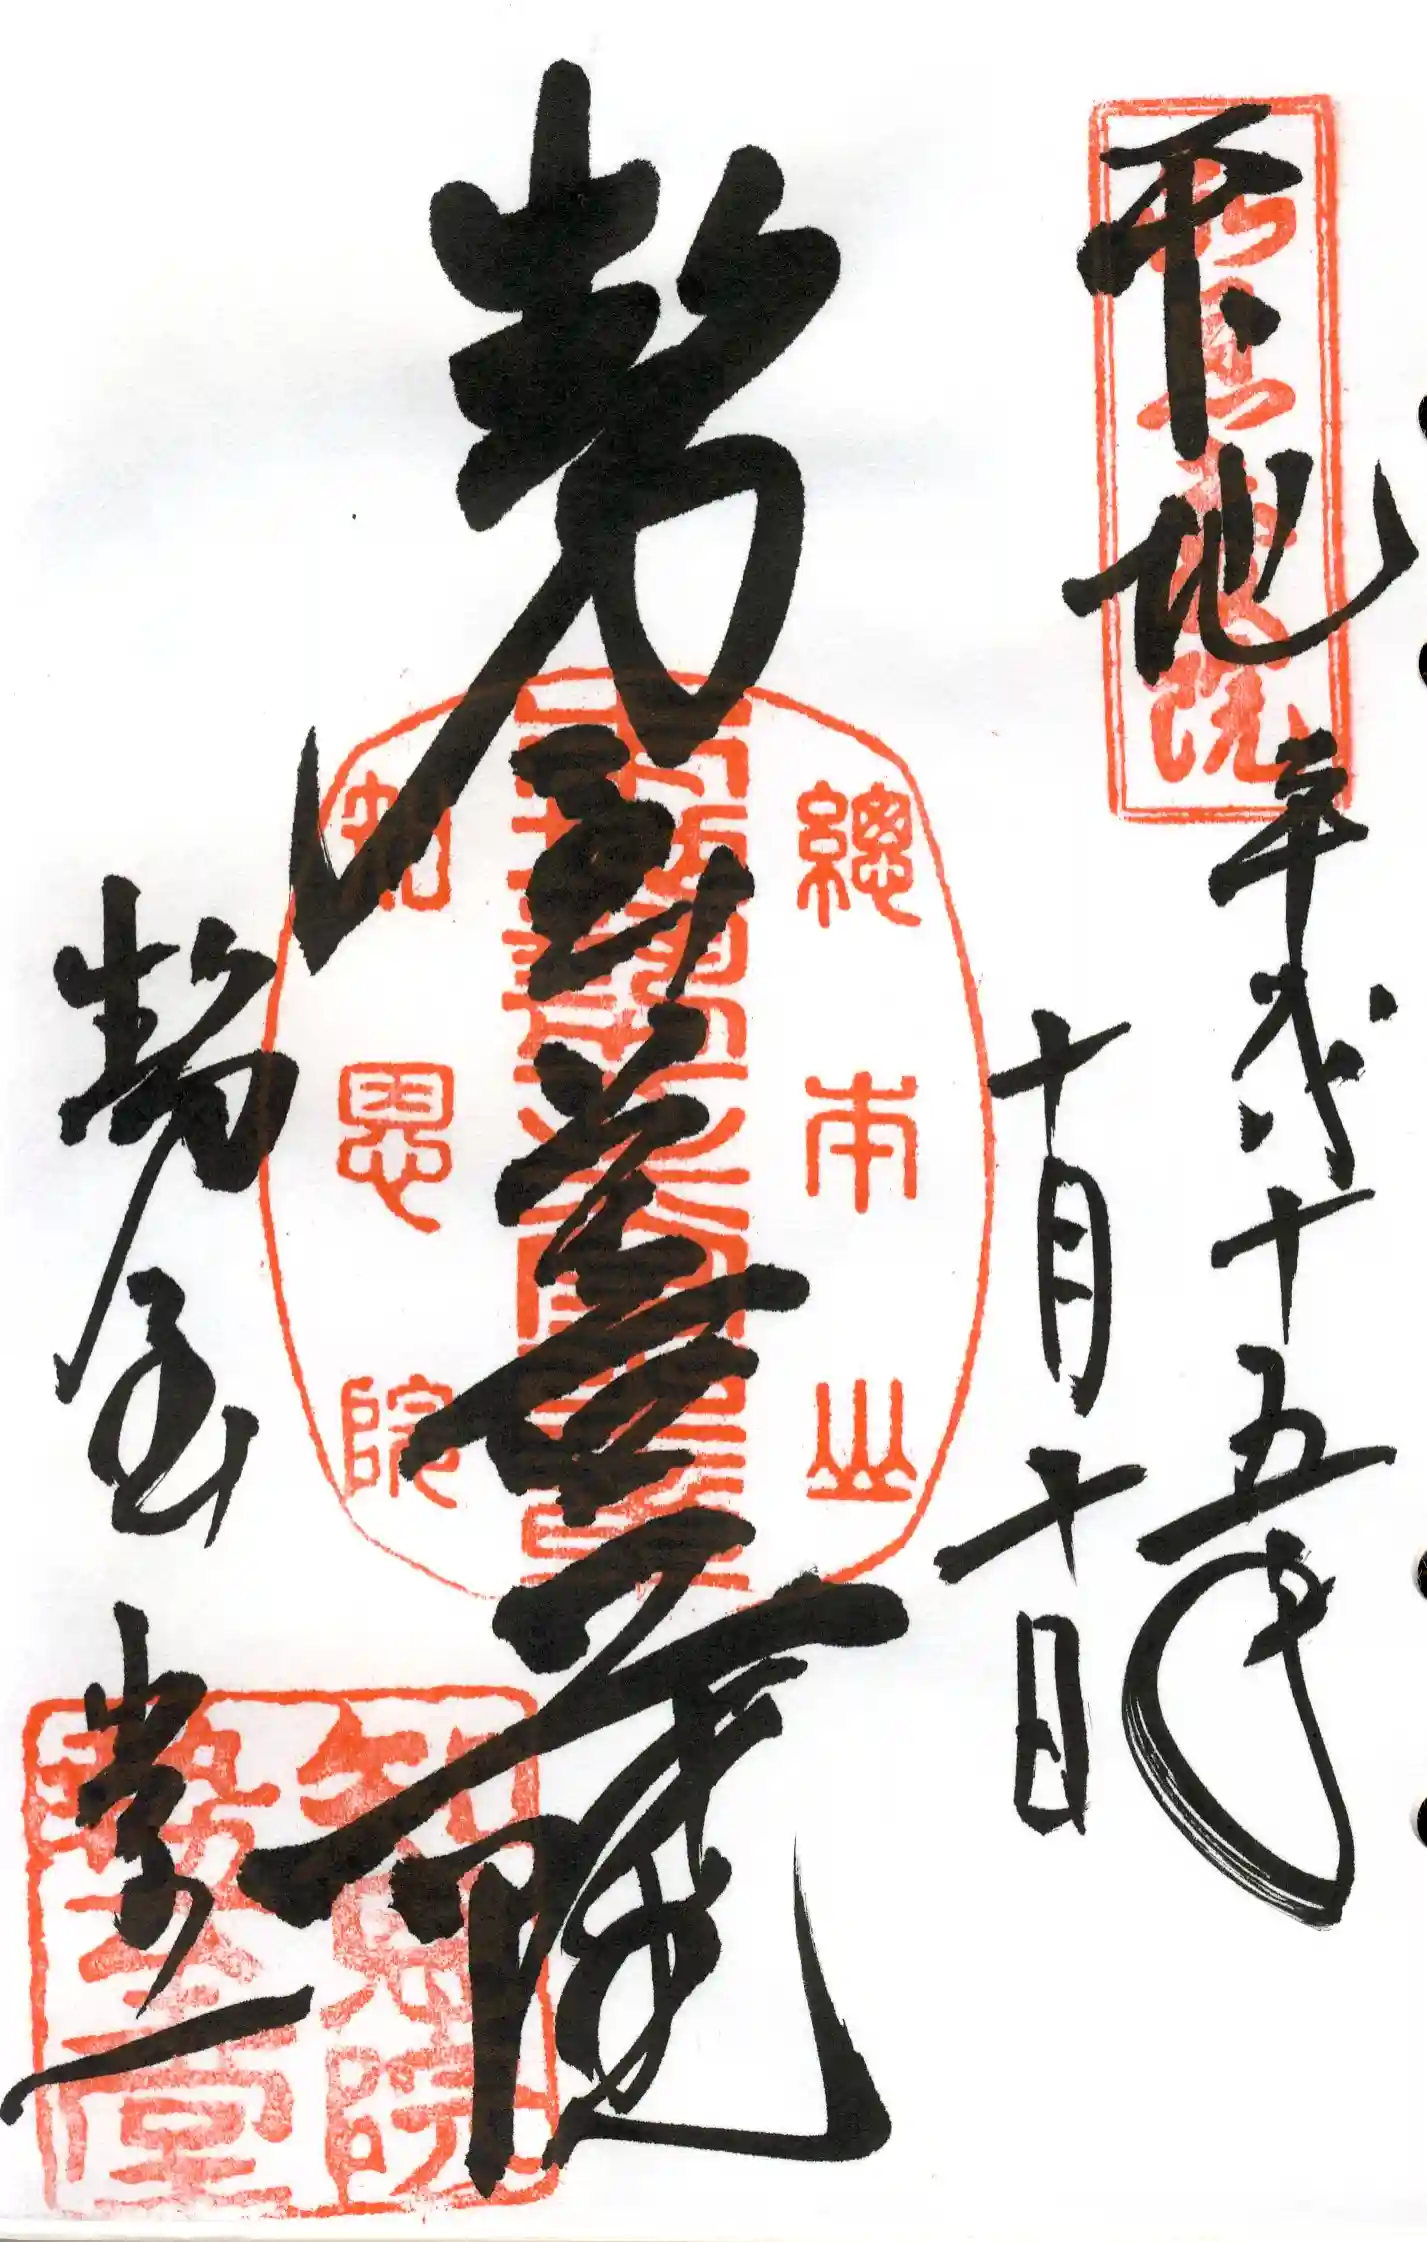 本地
平成二十五年
十月十日
勢至菩薩
勢至堂
總本山
知恩院
知恩院
勢至堂